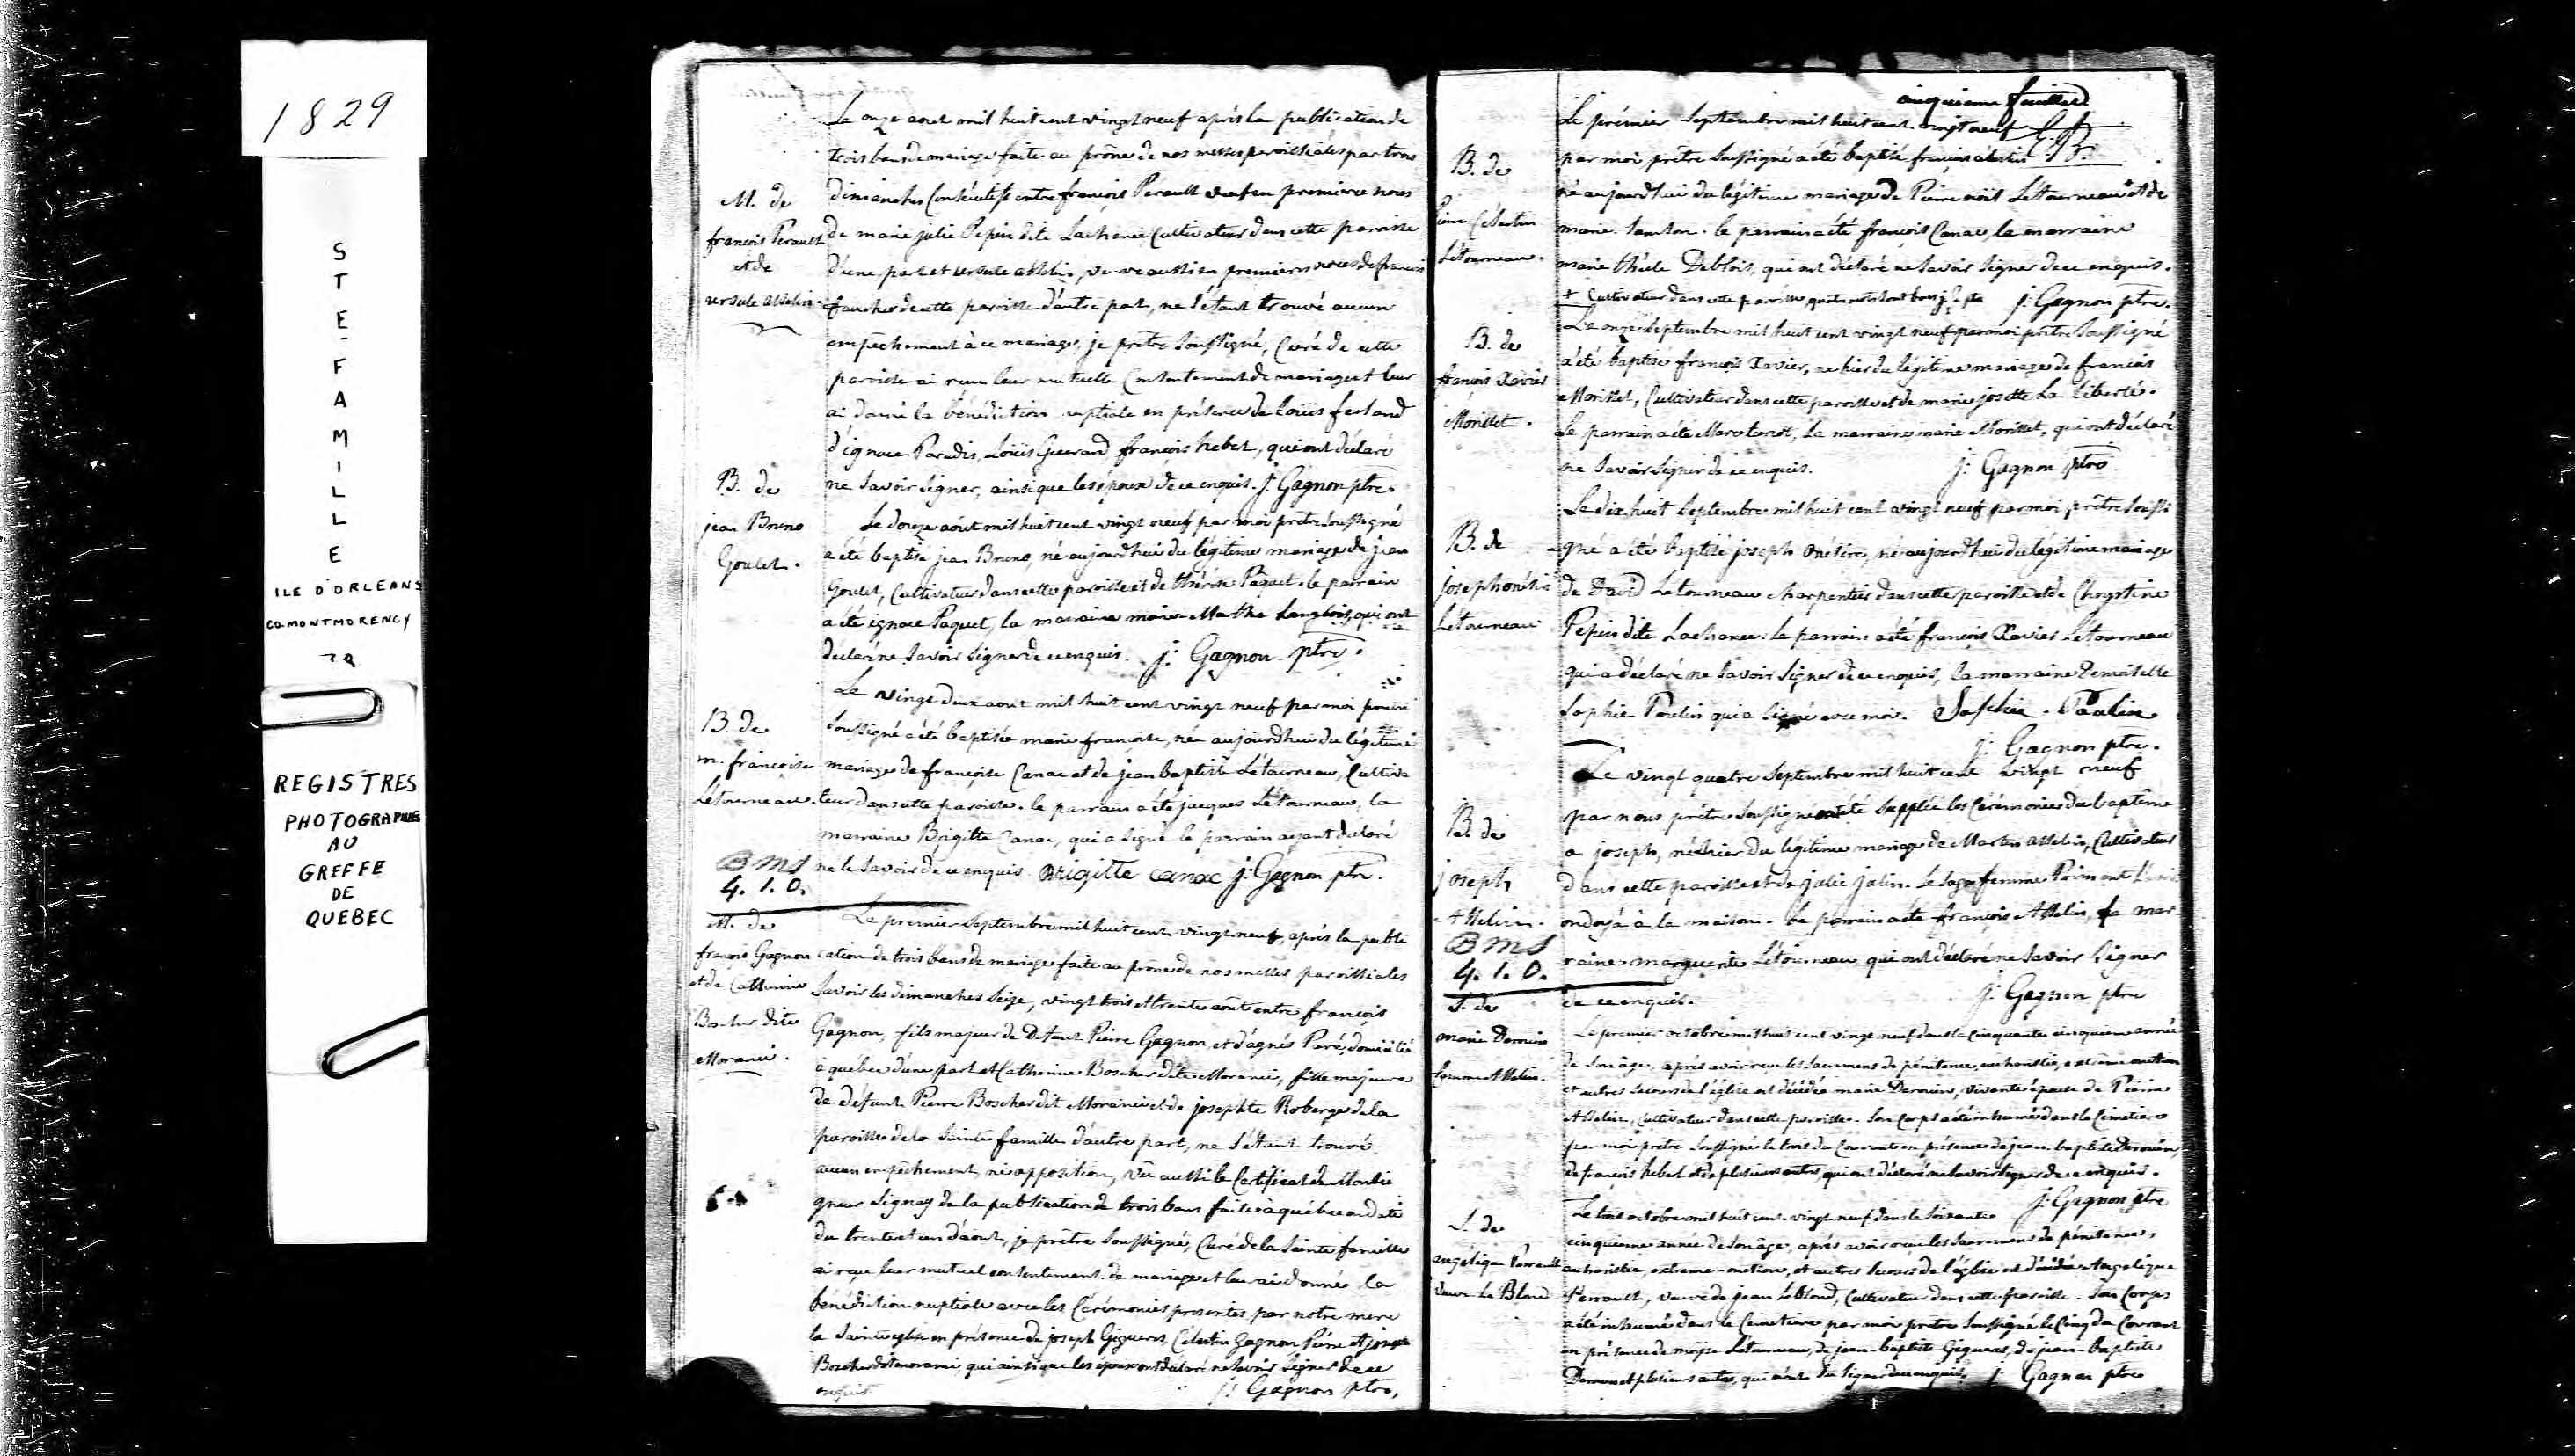 1829
S
T
E-
F
A
M
I
L
L
E
ILE D'ORLEANS
CO. MONTMORENCY
REGISTRES
PHOTOGRAPHIES
AU
GREFFE
DE
QUEBEC
Le onze aout mil huit cent vingt neuf après la publication de
trois bans de mariage faite au prône de nos messes paroissiales par trois
M. de
françois Perault
et de
ursule asselin.
dimanches consécutifs entre françois Perault veuf en premiere noces
de marie julie Pepin dite Lachance Cultivateur dans cette paroisse
d'une part et ursule asselin, veuve aussi en premieres noces de françois
faucher de cette paroisse d'autre part, ne s'étant trouvé aucun
empêchement à ce mariage, je prêtre soussigné, Curé de cette
paroisse ai reçu leur mutuelle Consentement de mariage et leur
ai donné la bénédiction nuptiale en présence de Loüis ferland
d'ignace Paradis, Loüis Guerard françois hebert, qui ont déclaré
ne savoir signer, ainsi que les époux de ce enquis. j: Gagnon ptre.
B. de
jean Bruno
Goulet.
Le douze août mil huit cent vingt neuf par moi prêtre soussigné
a été baptisé jean Bruno, né aujourdhui du légitime mariage de jean
Goulet, Cultivateur dans cette paroisse et de thérèse Paquet. le parrain
a été ignace Paquet, la marraine marie Marthe Langlois, qui ont
declaré ne savoir signer de ce enquis. j: Gagnon ptre.
B. de
m. françoise
Létourneau.
Le vingt deux aout mil huit cent vingt neuf par moi
soussigné a été baptisée marie françoise, née aujourdhui du légitime
mariage de françoise Canac et de jean baptiste Létourneau, Cultiva
teur dans cette paroisse. le parrain a été jacques Létourneau, la
marraine Brigitte Canac, qui a signé le parrain ayant déclaré
ne le savoir de ce enquis. Brigitte canac j: Gagnon ptr.
B M S
4. 1. 0.
M. de
françois Gagnon
et de Catherine
Boscher dite
Moranci.
Le premier septembre mil huit cent vingt neuf, après la publi
cation de trois bans de mariage faite au prône de nos messes paroissiales
savoir les dimanches seize, vingt trois et trente août entre françois
Gagnon, fils majeur de Defunt Pierre Gagnon, et d'agnès Paré, domicilié
à québec d'une part et Catherine Boscher dite Moranci, fille majeure
de défunt Pierre Boscher dit Moranci et de josephte Roberge de la
paroisse de la Sainte famille d'autre part, ne s'étant trouvé
aucun empêchement, ni opposition, vû aussi le Certificat de Monsei
gneur Signay de la publication de trois bans faite à québec en date
du trente et un d'aout, je prêtre soussigné, Curé de la Sainte famille
ai reçu leur mutuel consentement de mariage et leur ai donné la
bénédiction nuptiale avec les Cérémonies prescrites par notre mere
la Sainte eglise en présence de joseph Giguere, Célestin Gagnon, Pierre et joseph
Boscher dit moranci, qui ainsi que les époux ont déclaré ne savoir signer de ce
enquis. j: Gagnon ptre,
cinquieme feuillet
Le prémier septembre mil huit cent vingt neuf
B. de
Pierre Célestin
Létourneau.
par moi prêtre soussigné a été baptisé françois célestin
né aujourdhui du légitime mariage de Pierre noël Létourneau + et de
marie Janton. le parrain a été françois Canac, la marraine
marie thècle Deblois, qui ont déclaré ne savoir signer de ce enquis.
+ Cultivateur dans cette paroisse, quatre mots sont bons j: G. ptre j: Gagnon ptre.
B. de
françois Xavier
Morisset.
Le onze septembre mil huit cent vingt neuf par moi prêtre soussigné
a été baptisé françois Xavier, né hier du légitime mariage de françois
Morisset, Cultivateur dans cette paroisse et de marie josette La Liberté.
Le parrain a été Marc turcot, la marraine marie Morisset, qui ont déclaré
ne savoir signer de ce enquis. j: Gagnon ptre
B. de
joseph onésime
Létourneau
Le dix huit septembre mil huit cent vingt neuf par moi prêtre soussi
gné a été baptisé joseph onésime, né aujourdhui du légitime mariage
de David Létourneau charpentier dans cette paroisse et de Chrystine
Pepin dite Lachance: le parrain a été françois Xavier Létourneau
qui a déclaré ne savoir signer de ce enquis, la marraine Demoiselle
Sophie Poulin qui a signé avec moi. Sophie Poulin
j: Gagnon ptre.
B. de
joseph
Asselin.
Le vingt quatre septembre mil huit cent vingt neuf
par nous prêtre soussigné ont été supplée les Cérémonies du baptême
a joseph, né hier du légitime mariage de Martin asselin, Cultivateur
dans cette paroisse et de julie jalin. La sage femme
ondoyé à la maison. Le parrain a été françois Asselin, la mar
raine marguerite Létourneau qui ont déclaré ne savoir signer
de ce enquis. j: Gagnon ptre
B M S
4. 1. 0.
S. de
marie Derouin
femme Asselin.
Le premier octobre mil huit cent vingt neuf dans la cinquante cinquieme année
de son âge, après avoir reçu les sacremens de pénitence, eucharistie, extrême onction
et autres secours de l'église est décédée marie Derouin, vivante épouse de Pierre
Asselin, Cultivateur dans cette paroisse. Son corps a été inhumé dans le Cimetiere
par moi prêtre soussigné le trois du Courant en présence de jean baptiste Derouin,
de françois hebert et de plusieurs autres, qui ont déclaré ne savoir signer de ce enquis.
j: Gagnon ptre
S. de
angelique Perrault
Veuve Le Blond
Le trois octobre mil huit cent vingt neuf dans la soixante
cinquieme année de son âge, après avoir reçu les sacremens de pénitence,
eucharistie, extreme-onction, et autres secours de l'église est décédée Angelique
Perrault, veuve de jean leblond, Cultivateur dans cette paroisse. Son Corps
a été inhumé dans le Cimetiere par moi prêtre soussigné le Cinq du Courant
en présence de moÿse Létourneau, de jean baptiste Giguere, de jean-baptiste
Derouin et plusieurs autres, qui n'ont su signer de ce enquis. j: Gagnon ptre